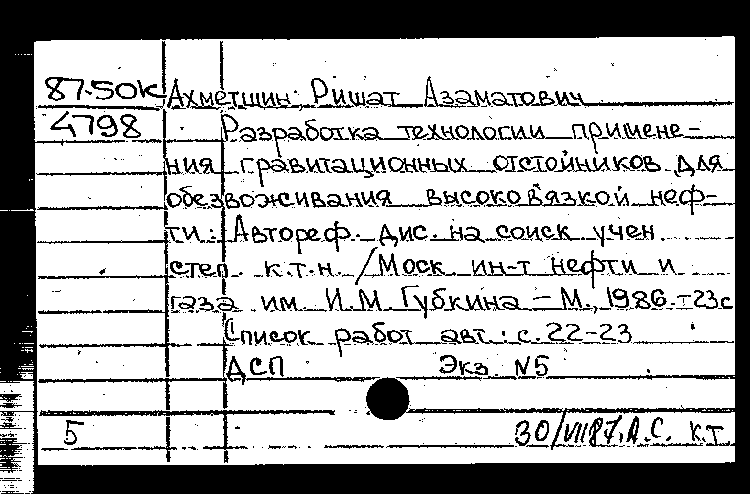 87-50К Ахметшин, Ришат Азаматович
4798 Разработка технологии примене-
ния гравитационных отстойников для
обезвоживания высоковязкой неф-
ти: Автореф. дис. на соиск учен
степ. к.т.н. /Моск ин-т нефти и
газа им. И.М. Губкина - М., 1986.-23с
Список работ авт.: с. 22-23
ДСП Экз. N5
5 30/VII87. А.С. К.Т